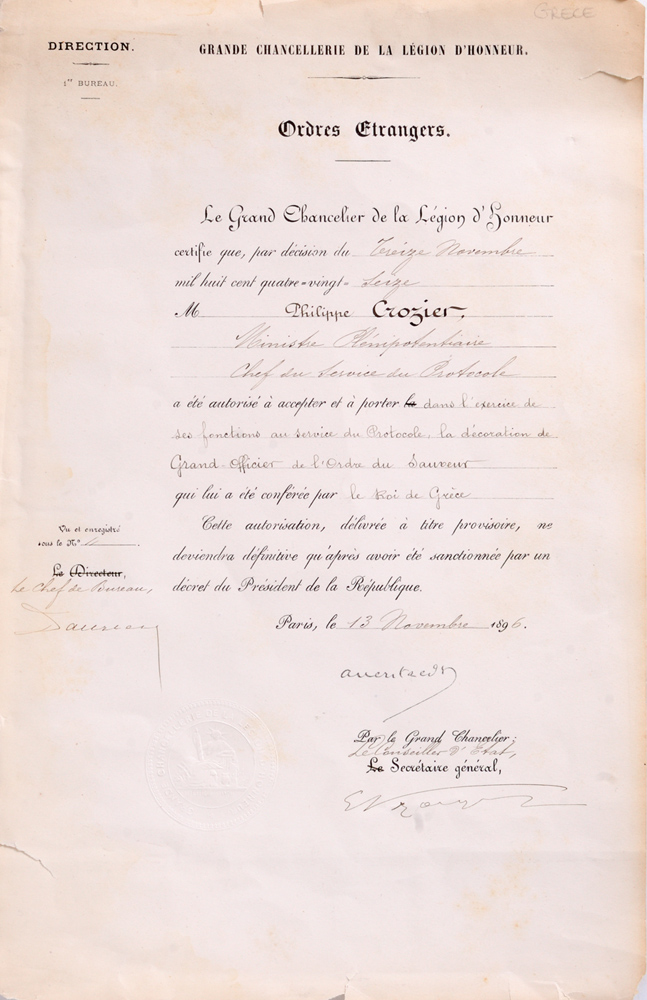 GRECE
DIRECTION.
1er BUREAU.
GRANDE CHANCELLERIE DE LA LÉGION D'HONNEUR.
Ordres Etrangers.
Le Grand Chancelier de la Légion d'Honneur
certifie que, par décision du Treize Novembre
mil huit cent quatre-vingt-seize
M Philippe Crozier,
Ministre Plénipotentiaire
Chef du Service du Protocole
a été autorisé à accepter et à porter la dans l'exercice de
ses fonctions au service du Protocole, la décoration de
Grand-Officier de l'Ordre du Sauveur
qui lui a été conférée par le Roi de Grèce
Cette autorisation, délivrée à titre provisoire, ne
deviendra définitive qu'après avoir été sanctionnée par un
décret du Président de la République.
Vu et enregistré
sous le N°
Le Directeur,
Le Chef de Bureau,
Paris, le 13 Novembre 1896.
Par le Grand Chancelier:
Le Conseiller d'Etat,
Le Secrétaire général,